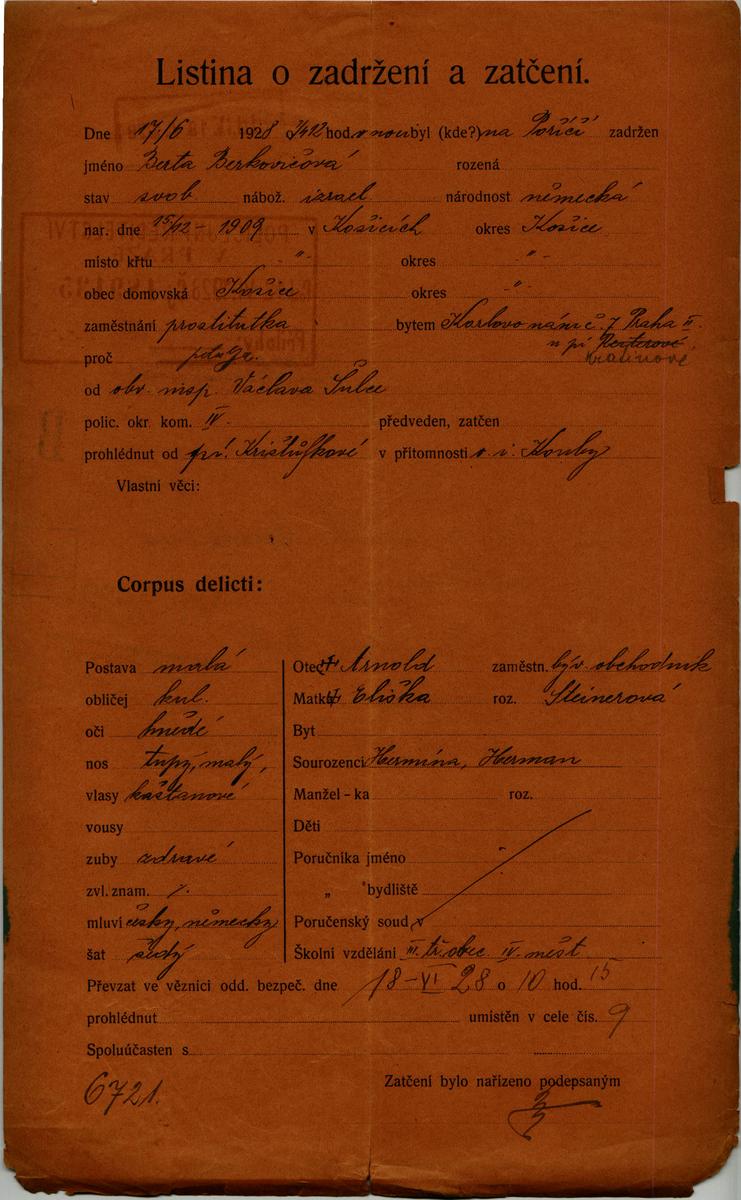 Listina o zadržení a zatčení.
Dne 17./6 1928 o 3/4 12 hod. v noci byl (kde?) na Poříčí zadržen
jméno Berta Berkovičová rozená
stav svob nábož. izrael národnost německá
nar. dne 15/12 - 1909 v Košicích okres Košice
místo křtu " - okres - " -
obec domovská Košice okres - " -
zaměstnání prostitutka bytem Karlovo nám č. 7 Praha II.
u pí Reiterové
proč
od obv. insp. Václava Šulce
polic. okr. kom. IV. předveden, zatčen
prohlédnut od pí. Krištůfkové v přítomnosti v. i. Kouby
Vlastní věci:
Corpus delicti:
Postava malá
obličej kul.
oči hnědé
nos tupý, malý,
vlasy kaštanové
vousy
zuby zdravé
zvl. znam. /.
mluví česky, německy
šat šedý
Otec † Arnold zaměstn. býv. obchodník
Matka † Eliška roz. Steinerová
Byt
Sourozenci Hermína, Herman
Manžel - ka roz.
Děti
Poručníka jméno
„ bydliště
Poručenský soud v
Školní vzdělání III. tř. obec. IV. měšt.
Převzat ve věznici odd. bezpeč. dne 18 - VI 28 o 10 hod. 15
prohlédnut umistěn v cele čís. 9
Spoluúčasten s
6721.
Zatčení bylo nařízeno podepsaným